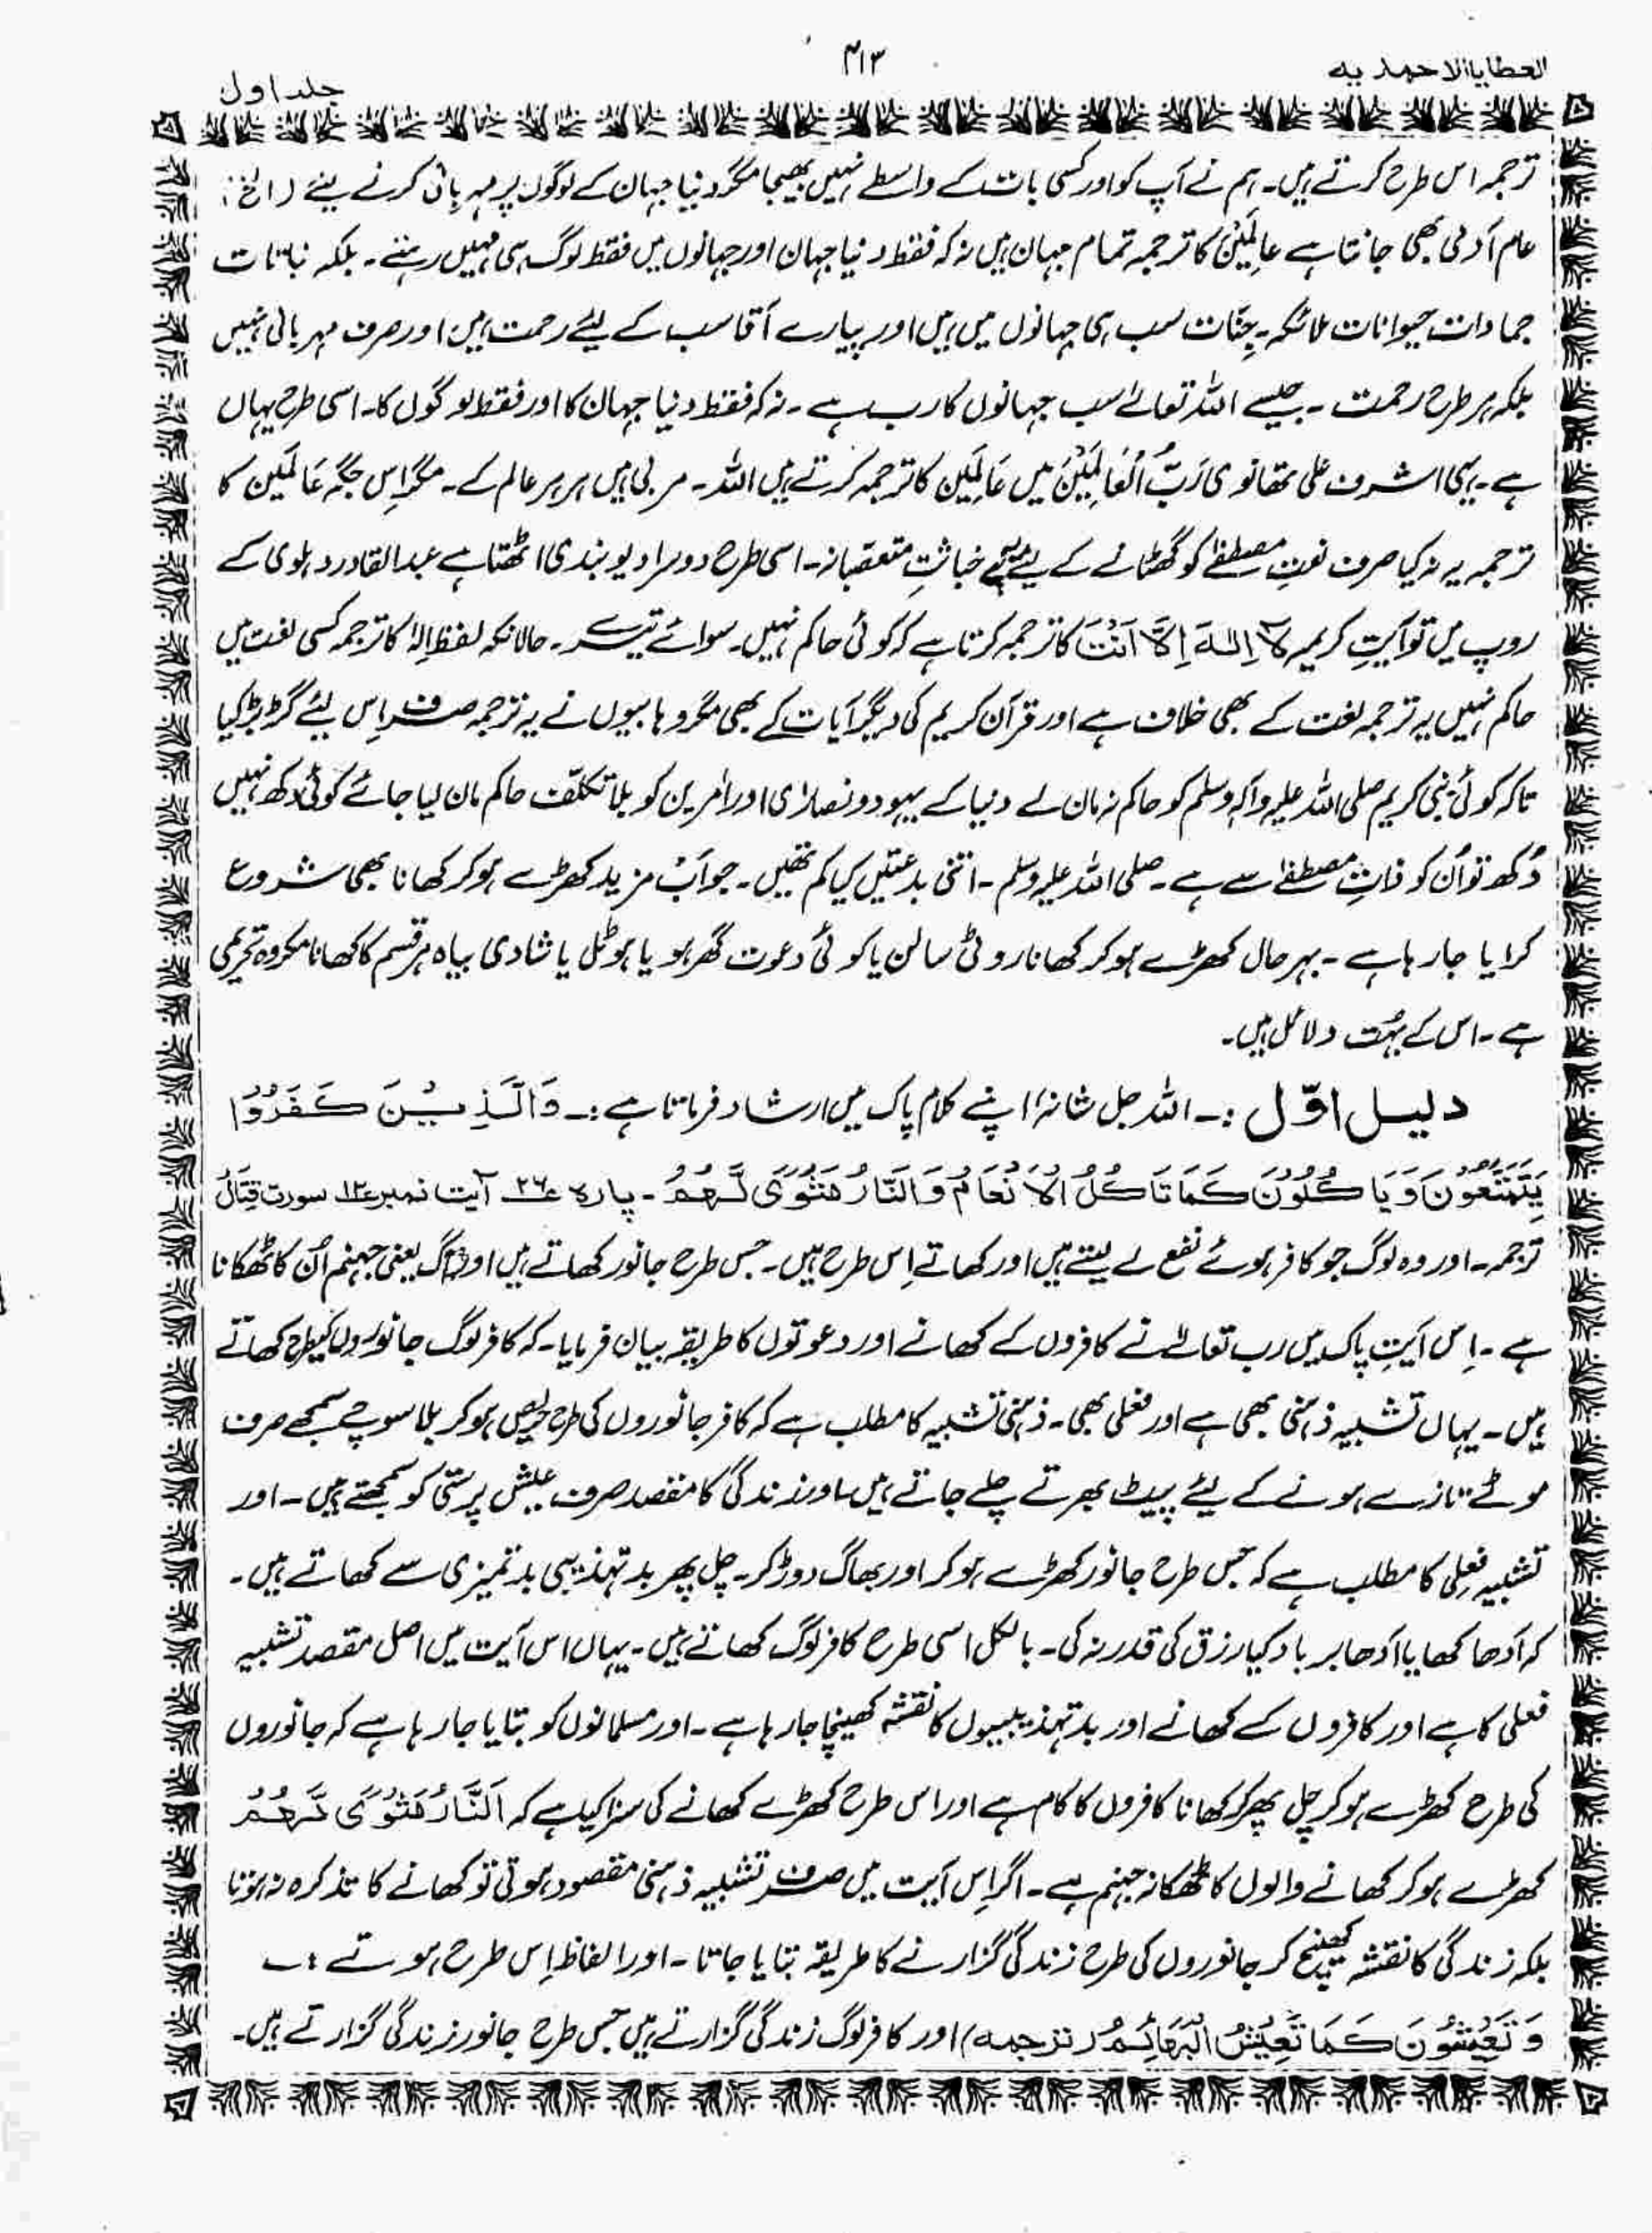 العطایا الاحمدیہ
۴۱۳
جلد اول
ترجمہ اس طرح کرتے ہیں۔ ہم نے آپ کو اور کسی بات کے واسطے نہیں بھیجا مگر دنیا جہان کے لوگوں پر مہربانی کرنے لیئے (الخ:
عام آدمی بھی جانتا ہے عالَمِیْنَ کا ترجمہ تمام جہان ہیں نہ کہ فقط دنیا جہان اور جہانوں میں فقط لوگ ہی نہیں رہتے۔ بلکہ نباتات
جمادات حیوانات ملائکہ۔ جِنّات سب ہی جہانوں میں ہیں اور پیارے آقا سب کے لیئے رحمت ہیں اور صرف مہربانی نہیں
بلکہ ہر طرح رحمت۔ جیسے اللہ تعالےٰ سب جہانوں کا رب ہے۔ نہ کہ فقط دنیا جہان کا اور فقط لوگوں کا۔ اسی طرح یہاں
ہے۔ یہی اشرف علی تھانوی رَبُّ الْعَالَمِیْنَ میں عَالَمِین کا ترجمہ کرتے ہیں اللہ۔ مربی ہیں ہر ہر عالم کے۔ مگر اِس جگہ عَالَمِین کا
ترجمہ یہ نہ کیا صرف نعتِ مصطفےٰ کو گھٹانے کے لیے خباثتِ متعصّبانہ۔ اسی طرح دوسرا دیوبندی اٹھتا ہے عبدالقادر دہلوی کے
روپ میں تو آیتِ کریمہ لَا اِلٰہَ اِلَّا اَنْتَ کا ترجمہ کرتا ہے کہ کوئی حاکم نہیں۔ سوائے تیرے۔ حالانکہ لفظِ اِلٰہ کا ترجمہ کسی لغت میں
حاکم نہیں یہ ترجمہ لغت کے بھی خلاف ہے اور قرآن کریم کی دیگر آیات کے بھی مگر وہابیوں نے یہ ترجمہ صرف اِس لیئے گڑبڑ کیا
تاکہ کوئی نبی کریم صلی اللہ علیہ وآلہ وسلم کو حاکم نہ مان لے دنیا کے یہود و نصارٰی اور امٰرین کو بلا تکلّف حاکم مان لیا جائے کوئی دکھ نہیں
دُکھ تو اُن کو ذاتِ مصطفٰے سے ہے۔ صلی اللہ علیہ وسلم۔ اتنی بدعتیں کیا کم تھیں۔ جو اَب مزید کھڑے ہو کر کھانا بھی شروع
کرایا جا رہا ہے۔ بہرحال کھڑے ہو کر کھانا روٹی سالن یا کوئی دعوت گھر ہو یا ہوٹل یا شادی بیاہ ہر قسم کا کھانا مکروہ تحریمی
ہے۔ اس کے بہت دلائل ہیں۔
دلیل اوّل :۔ اللہ جل شانہٗ اپنے کلام پاک میں ارشاد فرماتا ہے :۔ وَالَّذِیْنَ کَفَرُوْا
یَتَمَتَّعُوْنَ وَیَاکُلُوْنَ کَمَا تَاکُلُ الْاَنْعَامُ وَالنَّارُ مَثْوًی لَّہُمْ۔ پارہ ۲۶؏ آیت نمبر ۱۲؏ سورت قِتَالْ
ترجمہ۔ اور وہ لوگ جو کافر ہوئے نفع لے لیتے ہیں اور کھاتے اِس طرح ہیں۔ جس طرح جانور کھاتے ہیں اور آگ یعنی جہنم اُن کا ٹھکانا
ہے۔ اِس آیتِ پاک میں رب تعالےٰ نے کافروں کے کھانے اور دعوتوں کا طریقہ بیان فرمایا۔ کہ کافر لوگ جانوروں کیطرح کھاتے
ہیں۔ یہاں تشبیہ ذہنی بھی ہے اور فعلی بھی۔ ذہنی تشبیہ کا مطلب ہے کہ کافر جانوروں کی طرح حریص ہو کر بلا سوچے سمجھے صرف
موٹے تازے ہونے کے لیئے پیٹ بھرتے چلے جاتے ہیں اور زندگی کا مقصد صرف عیش پرستی کو سمجھتے ہیں۔ اور
تشبیہِ فعلی کا مطلب ہے کہ جس طرح جانور کھڑے ہو کر اور بھاگ دوڑ کر۔ چل پھر بدتہذیبی بدتمیزی سے کھاتے ہیں۔
کہ آدھا کھایا آدھا برباد کیا رزق کی قدر نہ کی۔ بالکل اسی طرح کافر لوگ کھاتے ہیں۔ یہاں اس آیت میں اصل مقصد تشبیہ
فعلی کا ہے اور کافروں کے کھانے اور بدتہذیبیوں کا نقشہ کھینچا جا رہا ہے۔ اور مسلمانوں کو بتایا جا رہا ہے کہ جانوروں
کی طرح کھڑے ہو کر چل پھر کر کھانا کافروں کا کام ہے اور اس طرح کھڑے کھانے کی سزا کیا ہے کہ اَلنَّارُ مَثْوًی لَّہُمْ
کھڑے ہو کر کھانے والوں کا ٹھکانہ جہنم ہے۔ اگر اِس آیت میں صرف تشبیہ ذہنی مقصود ہوتی تو کھانے کا تذکرہ نہ ہوتا
بلکہ زندگی کا نقشہ کھینچ کر جانوروں کی طرح زندگی گزارنے کا طریقہ بتایا جاتا۔ اور الفاظ اِس طرح ہوتے :۔
وَ تَعِیْشُوْنَ کَمَا تَعِیْشُ الْبَہَائِمُ (ترجمہ) اور کافر لوگ زندگی گزارتے ہیں جس طرح جانور زندگی گزارتے ہیں۔